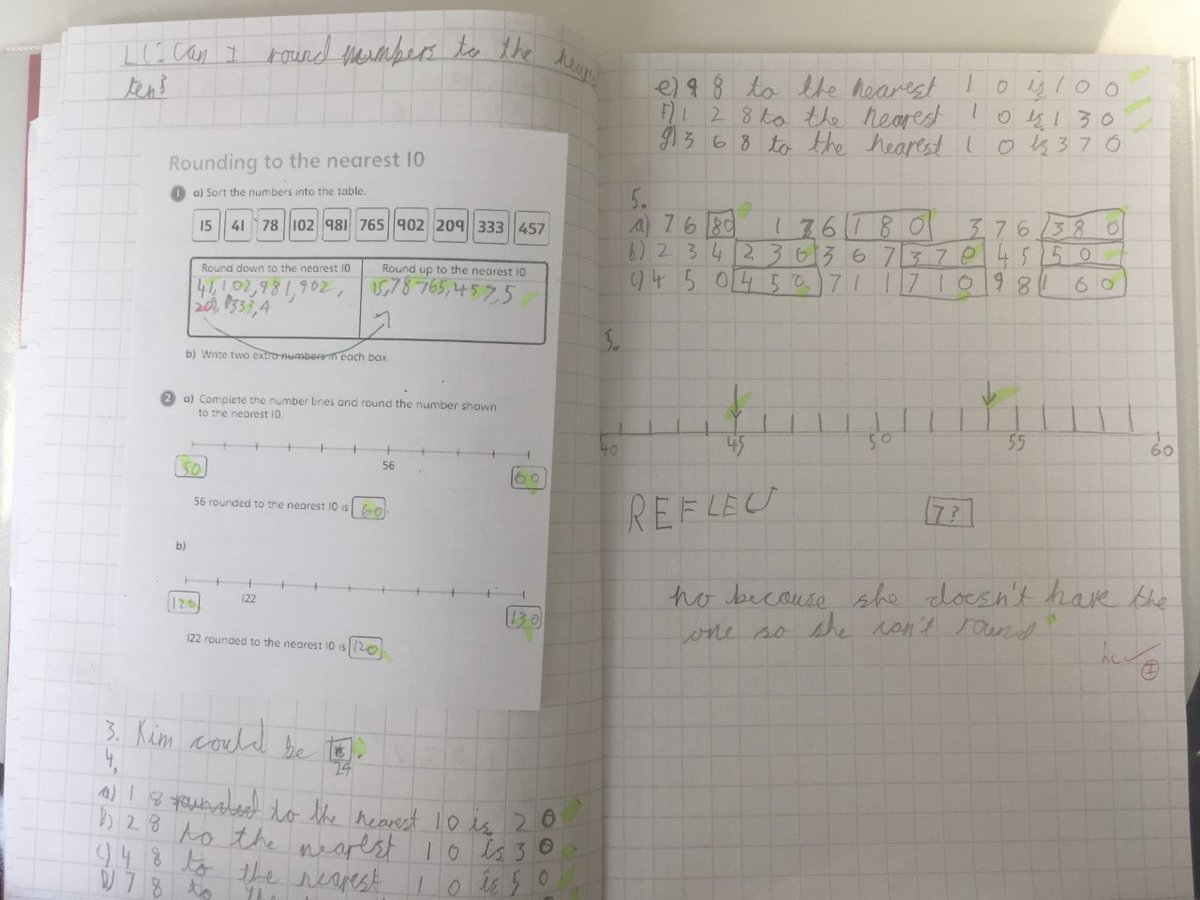 LC: Can I round numbers to the
ten?
Rounding to the nearest 10
1 a) Sort the numbers into the table.
15 41 78 102 981 765 902 209 333 457
Round down to the nearest 10 Round up to the nearest 10
41, 102, 981, 902, 15, 78 765, 457, 5
209, 333, 4
b) Write two extra numbers in each box.
2 a) Complete the number lines and round the number shown
to the nearest 10.
56
50 60
56 rounded to the nearest 10 is 60.
b)
122
120 130
122 rounded to the nearest 10 is 120
3. Kim could be
24
4.
a) 18 rounded to the nearest 10 is 20
b) 28 to the nearest 10 is 30
c) 48 to the nearest 10 is 50
D) 78 to
e) 98 to the nearest 10 is 100
f) 128 to the nearest 10 is 130
g) 368 to the nearest 10 is 370
5.
a) 76 80 176 180 376 380
b) 234 230 367 370 45 50
c) 450 450 711 710 98 100
5.
40 45 50 55 60
REFLEC
7?
no because she doesn't have the
one so she can't round